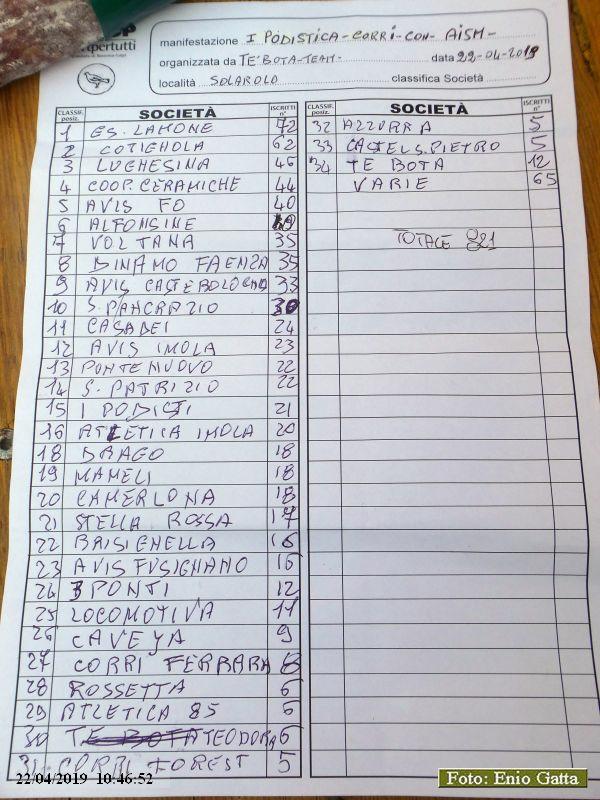 apertutti
manifestazione I PODISTICA-CORRI-CON-AISM-
organizzata da TE'BOTA-TEAM- data 22-04-2019
località SOLAROLO classifica Società
CLASSIF. posiz. SOCIETÀ ISCRITTI n°
1 ES. LAMONE 72
2 COTIGNOLA 62
3 LUGHESINA 46
4 COOP. CERAMICHE 44
5 AVIS FO 40
6 ALFONSINE
7 VOLTANA 35
8 DINAMO FAENZA 35
9 AVIS CASTEBOLOGNO 33
10 S. PANCRAZIO 30
11 CASADEI 24
12 AVIS IMOLA 23
13 PONTENUOVO 22
14 S. PATRIZIO 22
15 I PODISTI 21
16 ATLETICA IMOLA 20
18 DRAGO 18
19 MAMELI 18
20 CAMERLONA 18
21 STELLA ROSSA 17
22 BRISIGHELLA 16
23 AVIS FUSIGNANO 16
24 3 PONTI 12
25 LOCOMOTIVA 11
26 CAVEJA 9
27 CORRI FERRARA 8
28 ROSSETTA 6
29 ATLETICA 85 6
30 TE BOTA TEODORA 6
31 CORRI FOREST 5
CLASSIF. posiz. SOCIETÀ ISCRITTI n°
32 AZZURRA 5
33 CASTEL S. PIETRO 5
34 TE BOTA 12
VARIE 65
TOTALE 821
22/04/2019 10:46:52
Foto: Enio Gatta